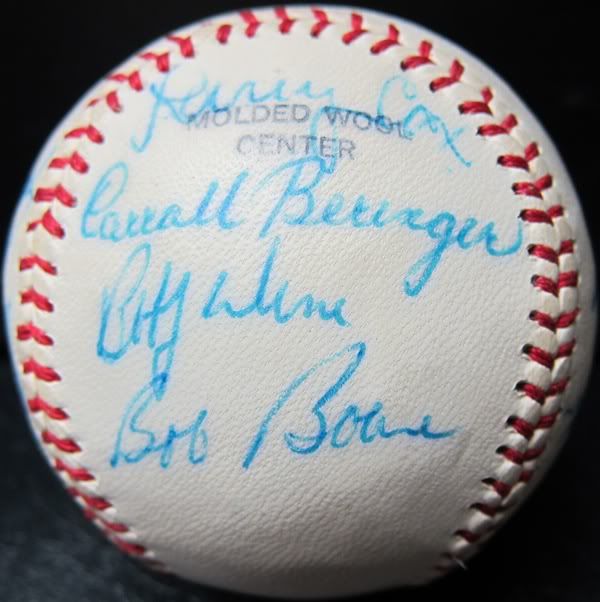 Larry Cox
MOLDED WOOL
CENTER
Carroll Beringer
Bobby Wine
Bob Boone